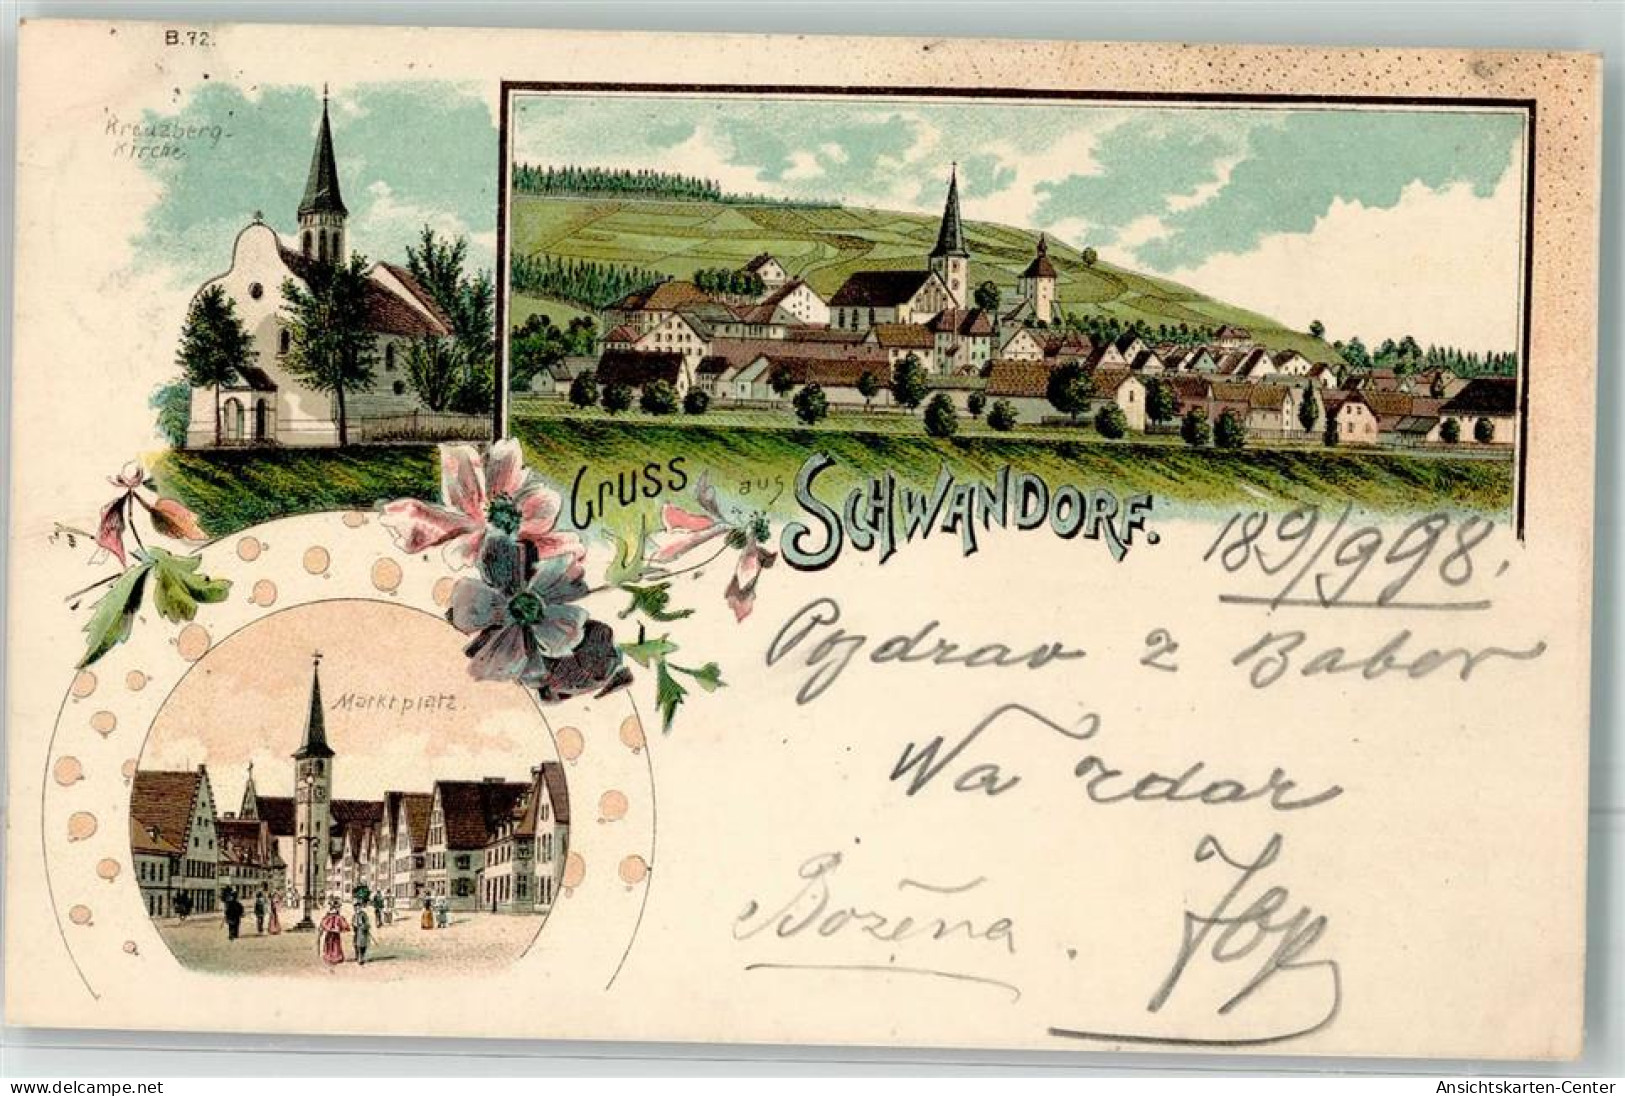 B.72.
Kreuzberg-
Kirche
Gruss aus SCHWANDORF.
189/9 98.
Pozdrav z Babor
Na zdar
Marktplatz.
Božena.
delcampe.net
Ansichtskarten-Center